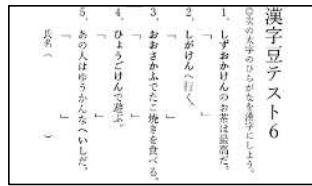 漢字豆テスト6
◎次の太字のひらがなを漢字にしよう。
1、しずおかけんのお茶は最高だ。
「　　　」
2、しがけんへ行く。
「　　　」
3、おおさかふでたこ焼きを食べる。
「　　　」
4、ひょうごけんで遊ぶ。
「　　　」
5、あの人はゆうかんなへいしだ。
「　　　」
氏名（　　　）